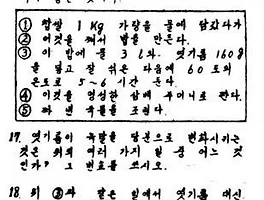 ① 찹쌀 1 Kg 가량을 물에 담갔다가
② 이것을 쪄서 밥을 만든다.
③ 이 밥에 물 3 l와 엿기름 160g
을 넣고 잘 섞은 다음에 60 도의
온도로 5~6 시간 둔다.
④ 이것을 엉성한 삼베 주머니로 짠다.
⑤ 짜낸 국물을 조린다.
17. 엿기름이 녹말을 당분으로 변화시키는
것은 위의 여러 가지 일 중 어느 것
인가? 그 번호를 쓰시오.
18. 위 ③과 같은 일에서 엿기름 대신